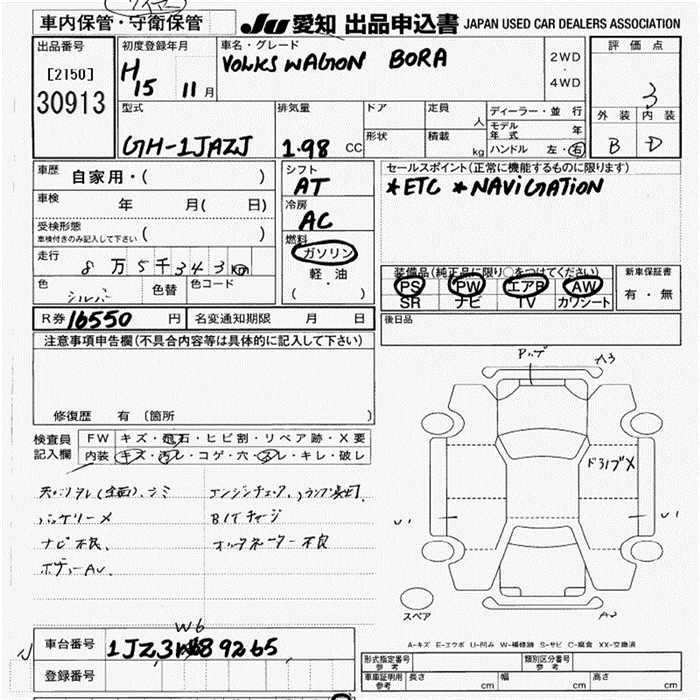 車内保管・守衛保管
JU 愛知 出品申込書 JAPAN USED CAR DEALERS ASSOCIATION
出品番号
[2150]
30913
初度登録年月
H15 11月
車名・グレード
VOLKSWAGON BORA
2WD
・
4WD
評価点
3
外装 内装
B D
型式
GH-1JAZJ
排気量
1.98 CC
ドア
定員
人
形状
積載
kg
ディーラー・並行
モデル年式 年
ハンドル 左・右
車歴
自家用・( )
車検
年 月( 日)
受検形態
車検付きのみ記入して下さい ( )
走行
8万5千343km
色
シルバー
色替
色コード
シフト
AT
冷房
AC
燃料
ガソリン
軽・油
( )
セールスポイント(正常に機能するものに限ります)
*ETC *NAViGATiON
装備品(純正品に限り○をつけてください)
PS PW エアB AW
SR ナビ TV カワシート
新車保証書
有・無
R券 16550 円
名変通知期限 月 日
後日品
注意事項申告欄(不具合内容等は具体的に記入して下さい)
修復歴 有 〔箇所 〕
検査員記入欄
FW キズ・飛石・ヒビ割・リペア跡・X要
内装 キズ・汚レ・コゲ・穴・スレ・キレ・破レ
バッテリーメ
ナビ不良、
ボディーAU.
オルタネーター不良
A3
U1
U1
A2
スペア
A-キズ E-エクボ U-凹み W-補修跡 S-サビ C-腐食 XX-交換済
車台番号
W6
登録番号
形式指定番号
参考
類別区分番号
参考
車庫証明用
参考
長さ cm
幅 cm
高さ cm